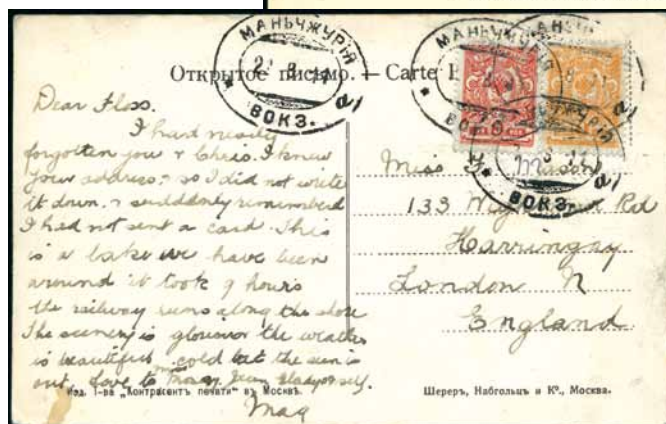 Открытое письмо. — Carte
МАНЬЧЖУРІЯ
ВОКЗ.
МАНЬЧЖУРІЯ
ВОКЗ.
ВОКЗ.
Dear Floss.
I had nearly
forgotten you & Chris. I knew
your address, so I did not write
it down, & suddenly remembered
I had not sent a card. This
is a lake we have been
around it took 9 hours
the railway runs along the shore
The scenery is glorious the weather
is beautiful cold but the sun is
out. Love to
Mag
Miss Mason
133 Rd
Harringay
London N
England
Изд. 1-ва „Контрагентъ печати“ въ Москвѣ.
Шереръ, Набгольцъ и Кº., Москва.